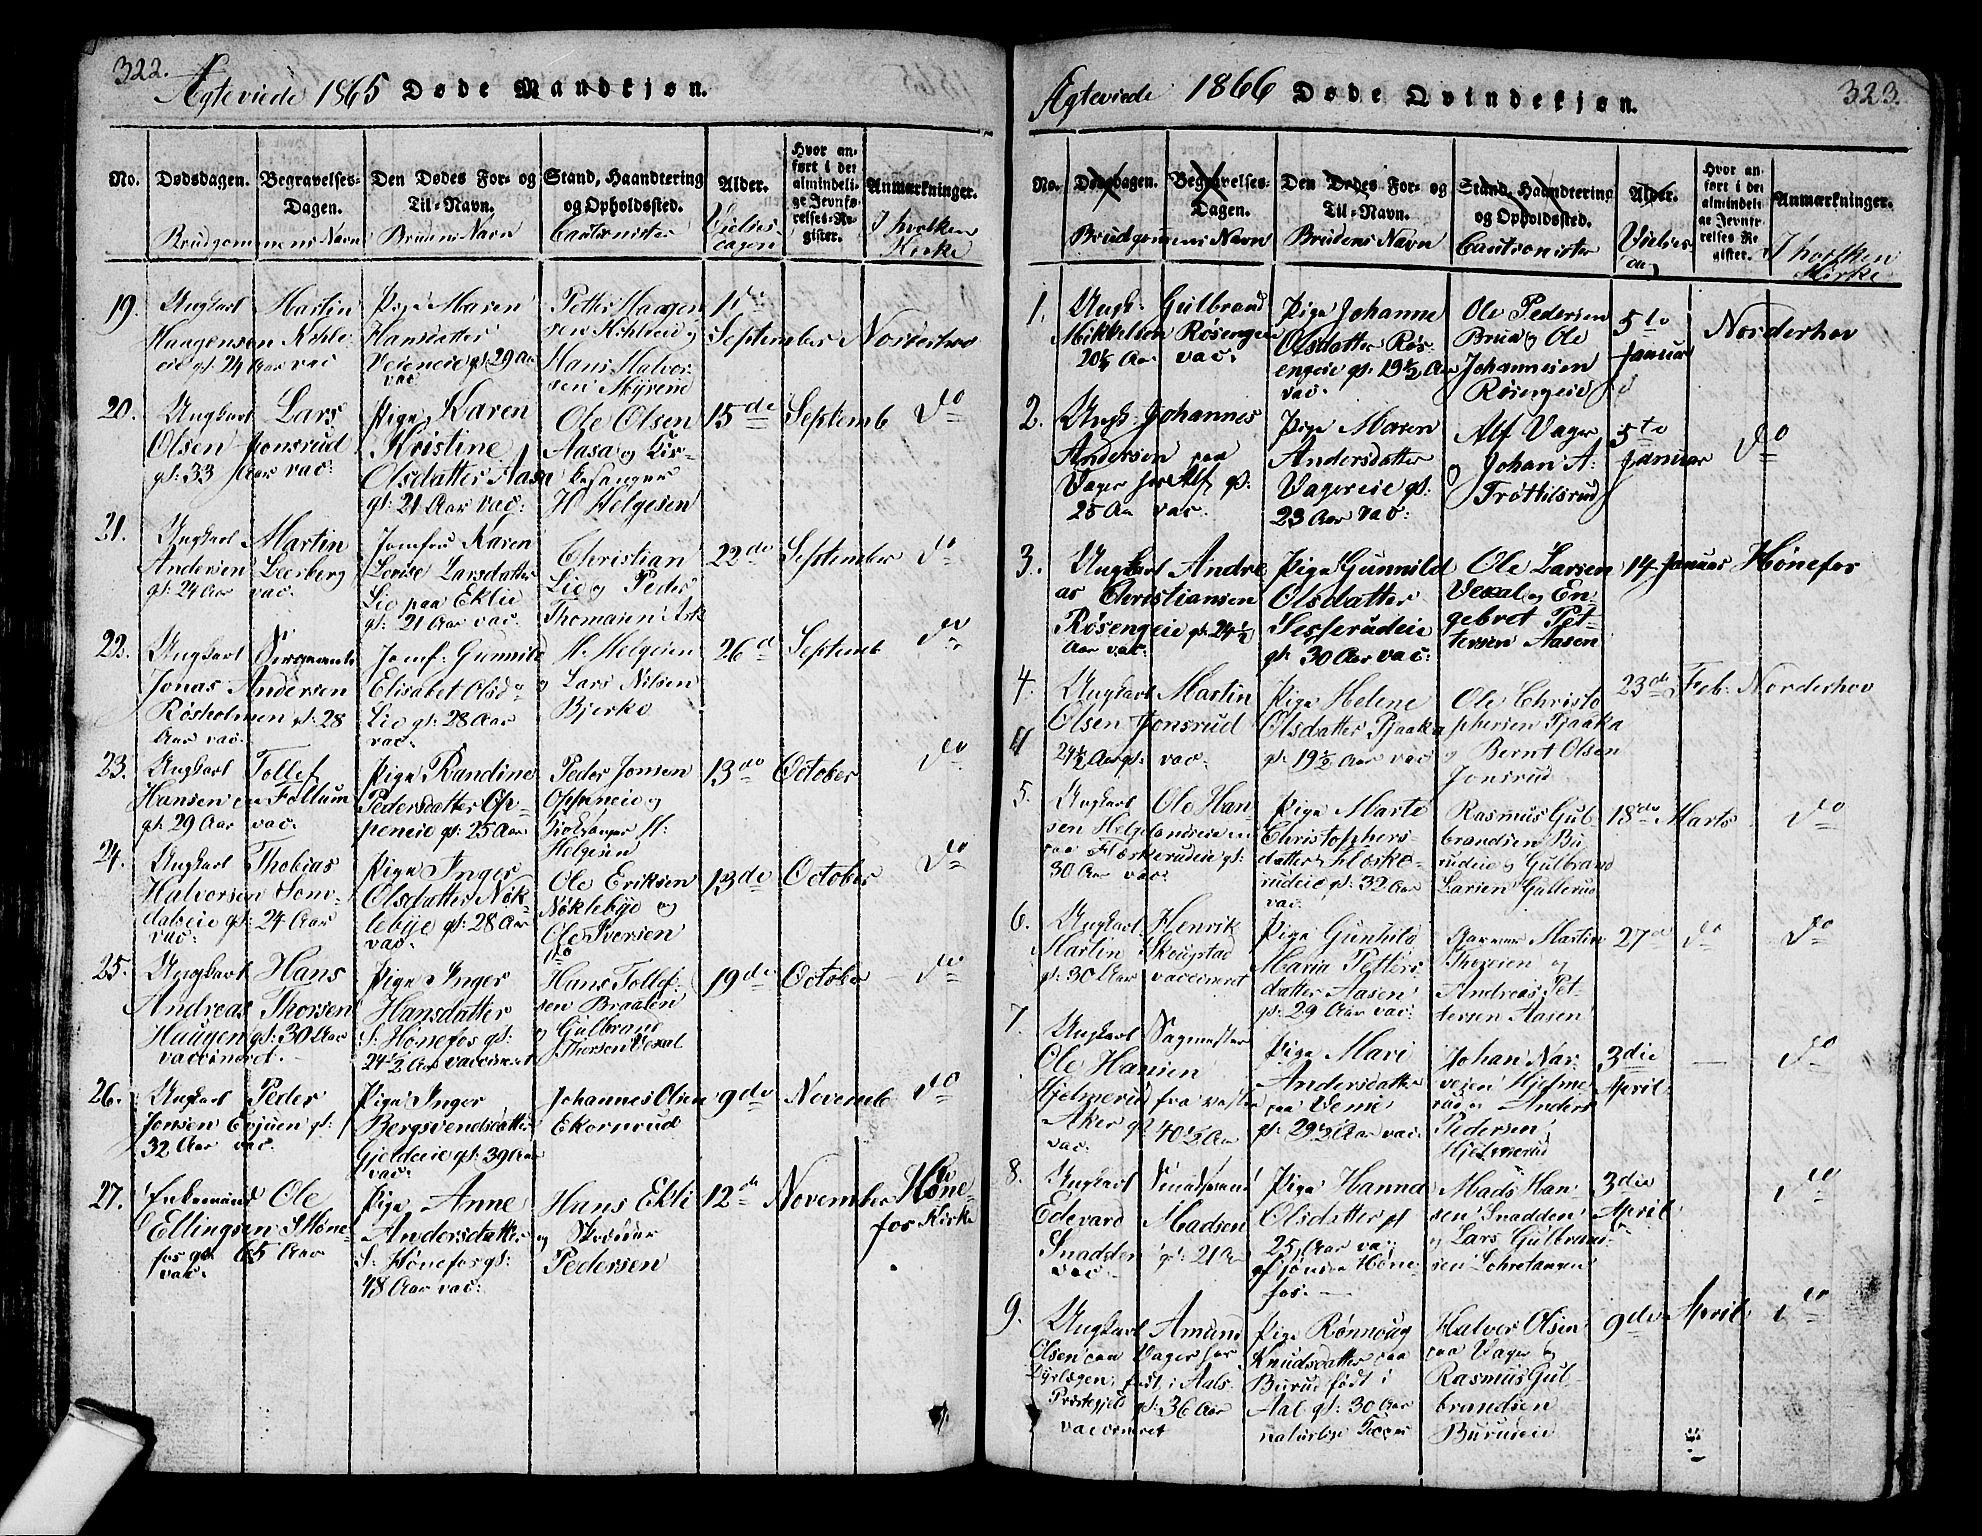 322.
Ægteviede 1865 Døde Mandkjøn.
No. Dødsdagen. Begravelses-Dagen. Den Dødes For- og Til-Navn. Stand, Haandtering og Opholdssted. Alder. Hvor anført i det almindelige Jevnførelses-Register. Anmærkninger.
Brudgommens Navn Brudens Navn Cautionister Vielsesdagen I hvilken Kirke
19. Ungkarl Martin Pige Maren Petter Haagen 1ste
Haagensen Kihle Hansdatter sen Kihleie og September Norderhov
eie gl: 24 Aar vac Veieneie gl: 29 Aar Hans Halvor
vac sen Myrene
20. Ungkarl Lars Pige Karen Ole Olsen 15de Septemb do
Olsen Jonsrud Kristine Aasa og Kir-
gl: 33 Aar vac: Olsdatter Aasa kesanger
gl: 21 Aar vac: H Helgesen
21. Ungkarl Martin Jomfru Karen Christian 22de September do
Andersen Leerberg Lovise Larsdatter Lie og Peder
gl: 24 Aar vac: Lie paa Eklie Thomasen Ask
gl: 21 Aar vac:
22. Ungkarl Sergeant Jomf: Gunnild H. Helgesen 26d Septemb do
Jonas Andersen Elisabet Olsd. og Lars Nilsen
Røsholmen gl: 28 Lie gl: 28 Aar Bjerke
Aar vac: vac:
23. Ungkarl Tollef Pige Randine Peder Jonsen 13de October do
Hansen Follum Pedersdatter Op- Oppeneie og
gl: 29 Aar vac: peneie gl: 25 Aar Kirkesanger H:
Helgesen
24. Ungkarl Thobias Pige Inger Ole Eriksen 13de October do
Halvorsen Sone- Olsdatter Nøk- Nøklebye og
daleie gl: 24 Aar lebye gl: 28 Aar Ole Iversen
vac: vac: do
25. Ungkarl Hans Pige Inger Hans Tollef- 19de October do
Andreas Thorsen Hansdatter sen Braaten
Haugen gl: 30 Aar S: Hønefos gl: og Gulbrand
vaccineret.- 24½ Aar vaccineret Thorsen Vexal
26. Ungkarl Peder Pige Inger Johannes Olsen 9de Novemb do
Jonsen Evjuen gl: Bergsvendsdatter Ekornrud
32 Aar vac: Gjeldeie gl: 39 Aar
vac:
27. Enkemand Ole Pige Anne Hans Ekli 12de November Høne-
Ellingsen S Høne- Andersdatter og Skræder fos Kirke
fos gl: 65 Aar S: Hønefos gl: Pedersen
vac. 48 Aar vac:
323.
Ægteviede 1866 Døde Qvindekjøn.
No. Dødsdagen. Begravelses-Dagen. Den Dødes For- og Til-Navn. Stand, Haandtering og Opholdssted. Alder. Hvor anført i det almindelige Jevnførelses-Register. Anmærkninger.
Brudgommens Navn Brudens Navn Cautionister Vielsesdag I hvilken Kirke
1. Ungk: Gulbrand Pige Johanne Ole Pedersen 5te Norderhov
Mikkelsen Røsengen Olsdatter Røs- Brua og Ole Januar
20½ Aar vac: engeie gl: 19½ Aar Johannesen
vac: Røsengeie
2. Ungk: Johannes Pige Maren Alf Vager 5te do
Andersen paa Andersdatter og Johan A: Januar
Vager for Alf gl: Vagereie gl: Trøttilsrud
25 Aar vac: 23 Aar vac:
3. Ungkarl Andre Pige Gunnild Ole Larsen 14 Januar Hønefos
as Christiansen Olsdatter Vexal og En-
Røsengeie gl: 24½ Sesserudeie gebret Pet-
Aar vac: gl: 30 Aar vac: tersen Aasen
4. Ungkarl Martin Pige Helene Ole Christo 23de Feb: Norderhov
Olsen Jonsrud Olsdatter Pjaaka phersen Pjaaka
24½ Aar gl: vac: gl: 19½ Aar vac og Bernt Olsen
Jonsrud
5. Ungkarl Ole Han- Pige Marte Rasmus Gul 18de Marts do
sen Helgelandseie Christophers- brandsen Bu
paa Flaskerudeie gl: datter Flaske- rudeie og Gulbrand
30 Aar vac: rudeie gl: 32 Aar Larsen Gullerud
vac:
6. Ungkarl Henrik Pige Gunhild Garver Martin 27de do do
Martin Skougstad Maria Petters- og
gl: 30 Aar vaccineret datter Aasen Andreas Pet-
gl: 29 Aar vac: tersen Aasen
7. Ungkarl Sagmester Pige Mari Johan Nar- 3die — do
Ole Hansen Andersdatter vesen Hjelme- April
Hjelmerud fra vestre paa Veme rud og Anders
Aker gl: 40½ Aar gl: 29½ Aar vac: Pedersen
vac: Hjelmerud
8. Ungkarl Pige Hanna Mads Han 3die do
Edevard Madsen Olsdatter gl sen Snadden April
Snadden gl: 21 Aar 25 Aar vac: og Lars Gulbrand-
vac: Høne- sen Lohrelangen
fos. —
9. Ungkarl Amund Pige Rønnoug Halvor Olsen 9de April do
Olsen paa Vager for Knudsdatter paa paa Vager og
Dyrlægen, født i Aals Burud født i Rasmus Gul-
Præstegjeld gl: 36 Aar Aal gl: 30 Aar brandsen
vaccineret naturlige Burudeie